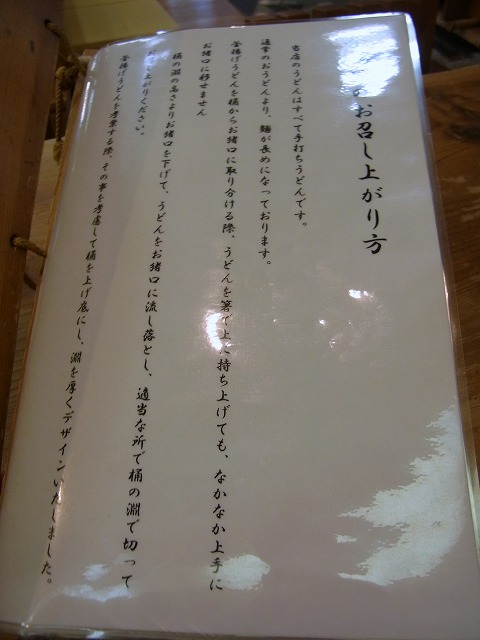 のお召し上がり方
当店のうどんはすべて手打ちうどんです。
通常のおうどんより、麺が長めになっております。
釜揚げうどんを桶からお猪口に取り分ける際、うどんを箸で上に持ち上げても、なかなか上手に
お猪口に移せません
桶の淵の高さよりお猪口を下げて、うどんをお猪口に流し落とし、適当な所で桶の淵で切って
上がりください。
釜揚げうどんを考案する際、その事を考慮して桶を上げ底にし、淵を厚くデザインいたしました。